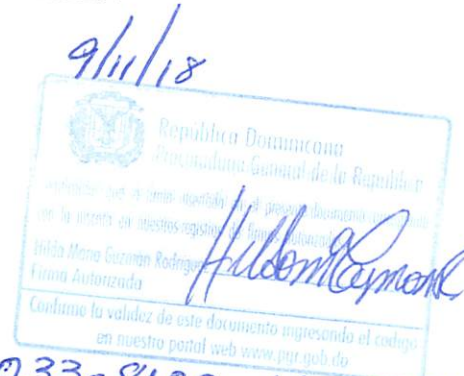 9/11/18
República Dominicana
Procuraduría General de la República
que la firma en el presente documento
con la inscrita en nuestros registros de firmas autorizadas
Hilda Maria Guzmán Rodriguez
Firma Autorizada
Confirme la validez de este documento ingresando el codigo
en nuestro portal web www.pgr.gob.do